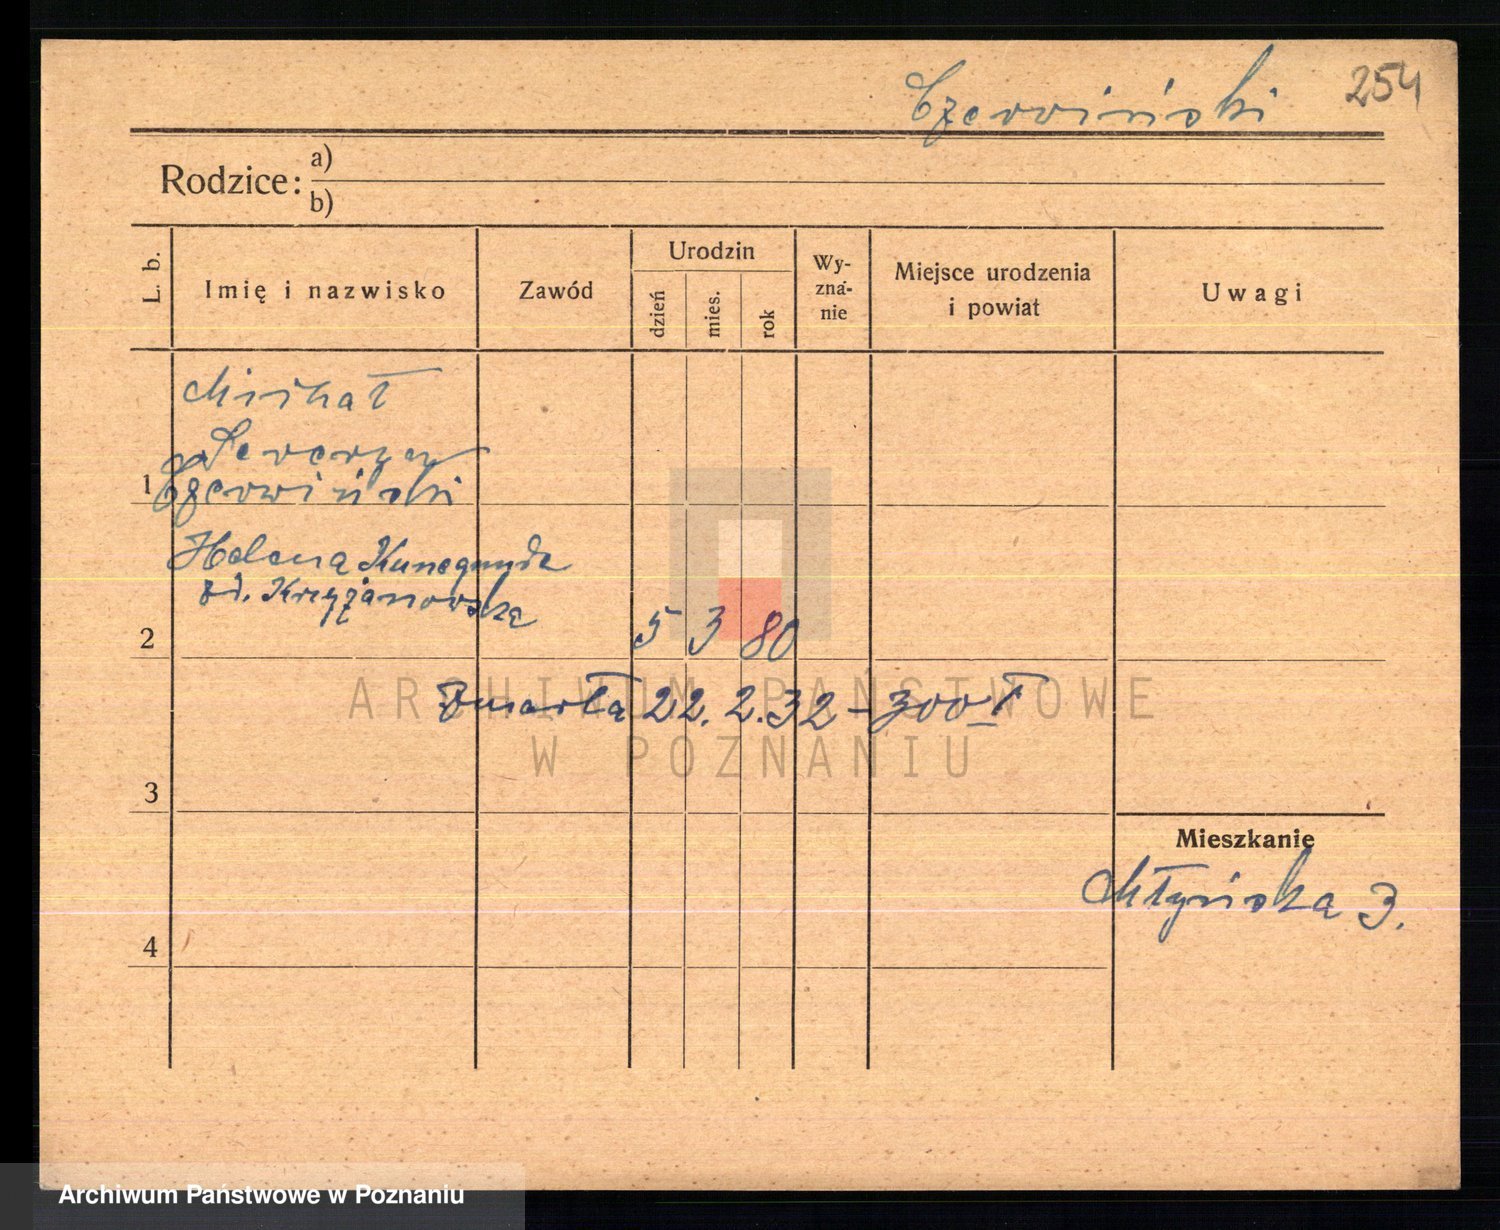 Czerwiński 254
Rodzice: a)
b)
L. b.
Imię i nazwisko
Zawód
Urodzin
dzień
mies.
rok
Wy-
zna-
nie
Miejsce urodzenia
i powiat
Uwagi
Michał
Seweryn
1 Czerwiński
Helena Kunegunda
zd. Krzyżanowska
2 5 3 80
zmarła 22. 2. 32 -
ARCHIWUM PAŃSTWOWE
W POZNANIU
3
Mieszkanie
Młyńska 3.
4
Archiwum Państwowe w Poznaniu